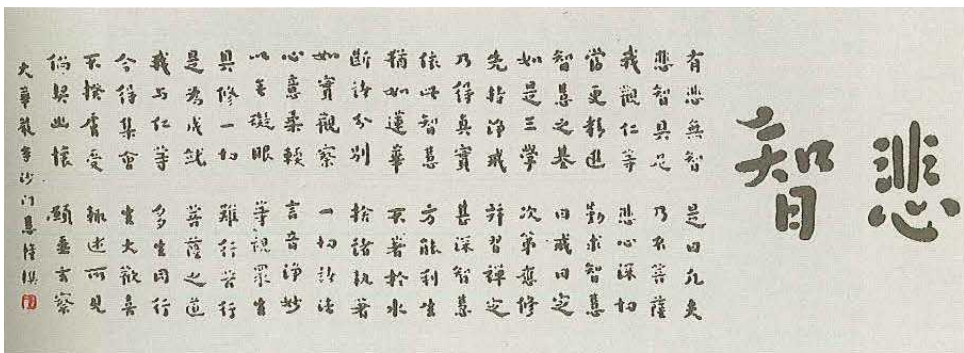 悲智
有悲無智是曰凡夫
悲智具足乃名菩薩
我觀仁等悲心深切
當更精進勤求智慧
智慧之基曰戒曰定
如是三學次第應修
先持淨戒並習禪定
乃得真實甚深智慧
依此智慧方能利生
猶如蓮華不著於水
斷諸分別捨諸執著
如實觀察一切諸法
心意柔輭言音淨妙
以无礙眼等視眾生
具修一切難行苦行
是為成就菩薩之道
我与仁等多生同行
今得集會生大歡喜
不揆膚受輒述所見
倘契幽懷願垂玄察
大華嚴寺沙門慧幢撰